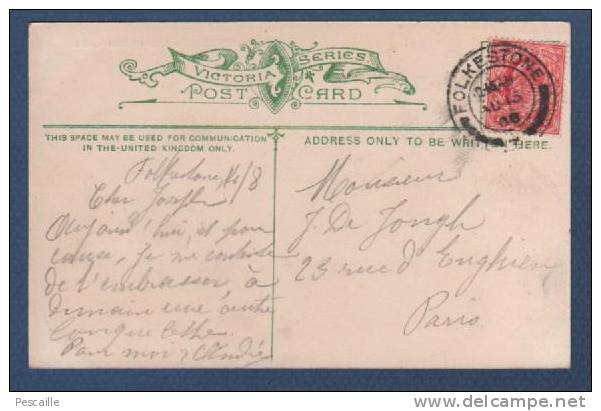 VICTORIA SERIES
POST CARD
THIS SPACE MAY BE USED FOR COMMUNICATION
IN THE UNITED KINGDOM ONLY.
ADDRESS ONLY TO BE WRITTEN HERE.
FOLKESTONE
AU 15
06
Folkestone, 14/8
Cher Joseph
Aujourd'hui, et pour
cause, je me contente
de t'embrasser, à
demain une autre
longue lettre.
Pour moi & André
Monsieur
J. De Jongh
23 rue d'Enghien
Paris
Pescaille
www.delcampe.net